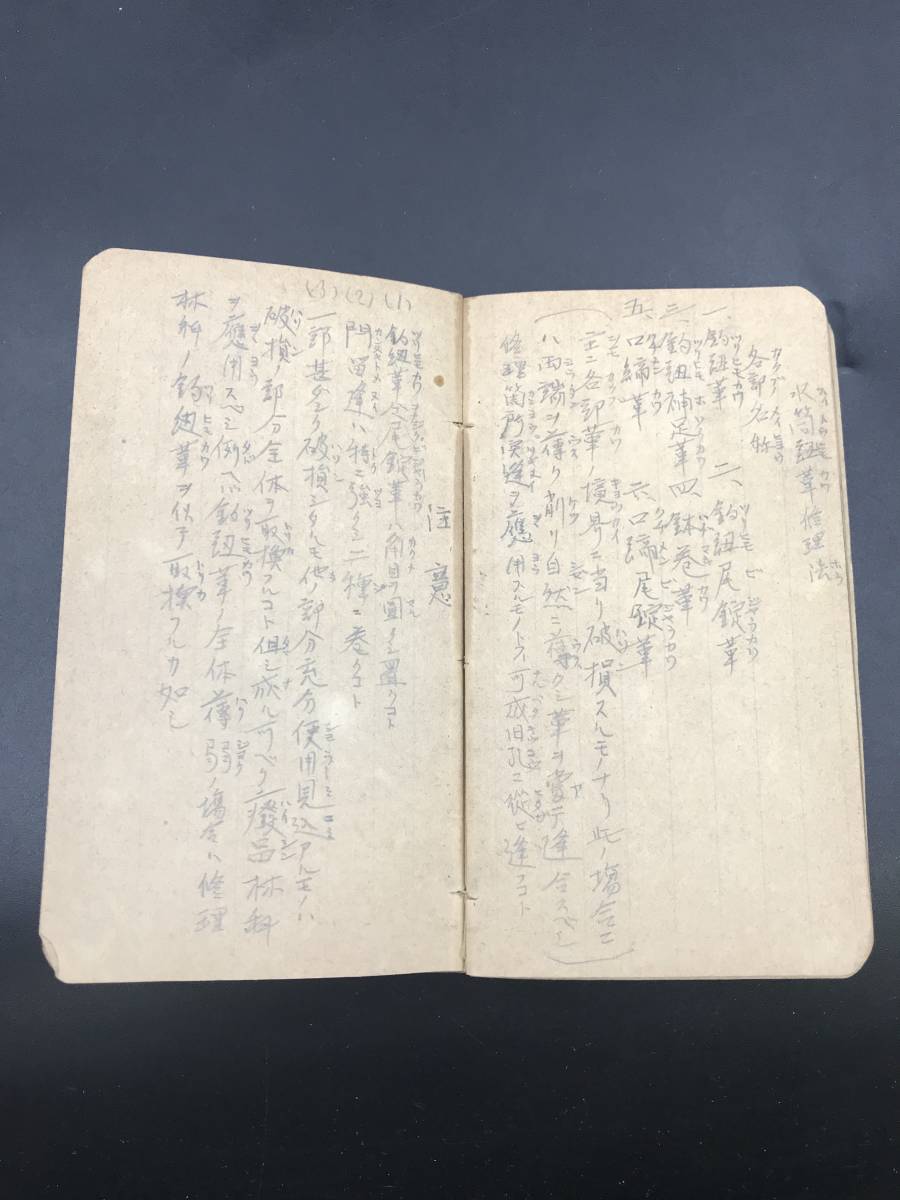 水筒紐革修理法
各部名称
一、釣紐革 二、釣紐尾錠革
三、釣紐補足革 四、鉢巻革
五、口締革 六、口締尾錠革
主ニ各部革ノ境界ニ当り破損スルモノナリ此ノ場合ニ
ハ両端ヲ薄ク削リ自然ニ薄クシ革ヲ当テ縫合スベシ
修理箇所縫ヲ應用スルモノトス可成旧孔ニ従ヒ縫フコト
注意
(1) 釣紐革尾錠革ハ角ヲ圓クシ置クコト
(2) 閂留縫ハ特ニ強クシ二種ニ巻クコト
(3) 一部甚ダシク破損シタルモ他ノ部分充分使用見込アルモノハ
破損ノ部分全体ヲ取換フルコト但シ成ル可ベク廢品材料
ヲ應用スベシ例ヘバ釣紐革ノ全体薄弱ノ場合ハ修理
材料ノ釣紐革ヲ以テ取換フルカ如シ